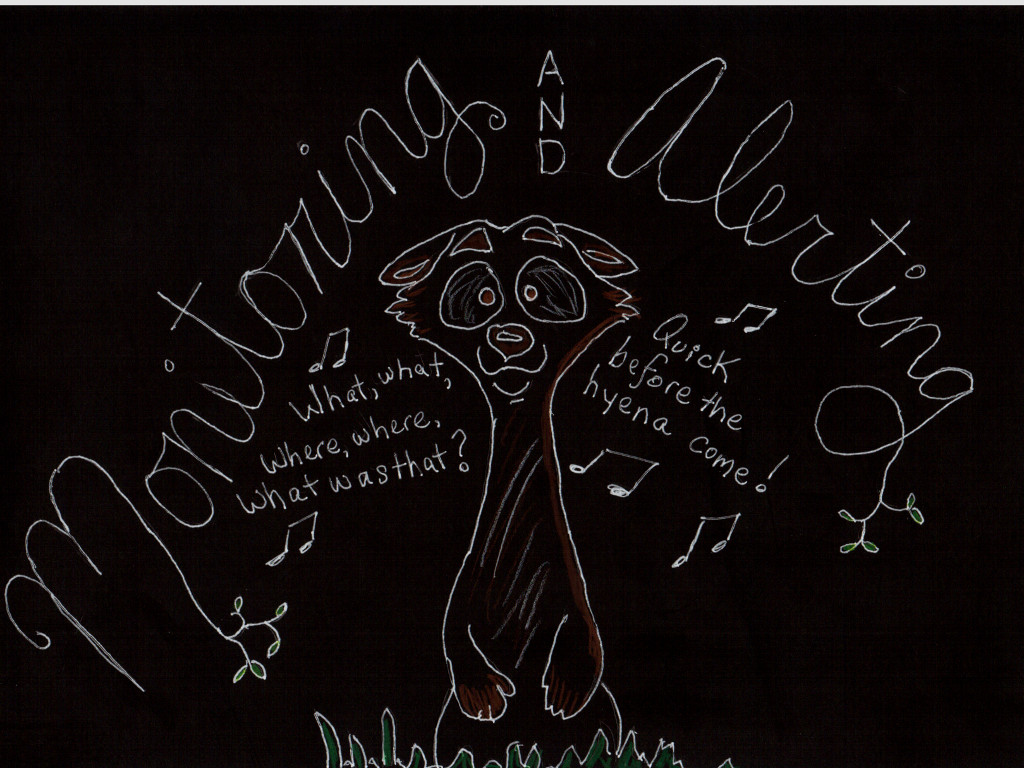 Monitoring
AND
Alerting
What, what,
where, where,
what was that?
Quick
before the
hyena come!